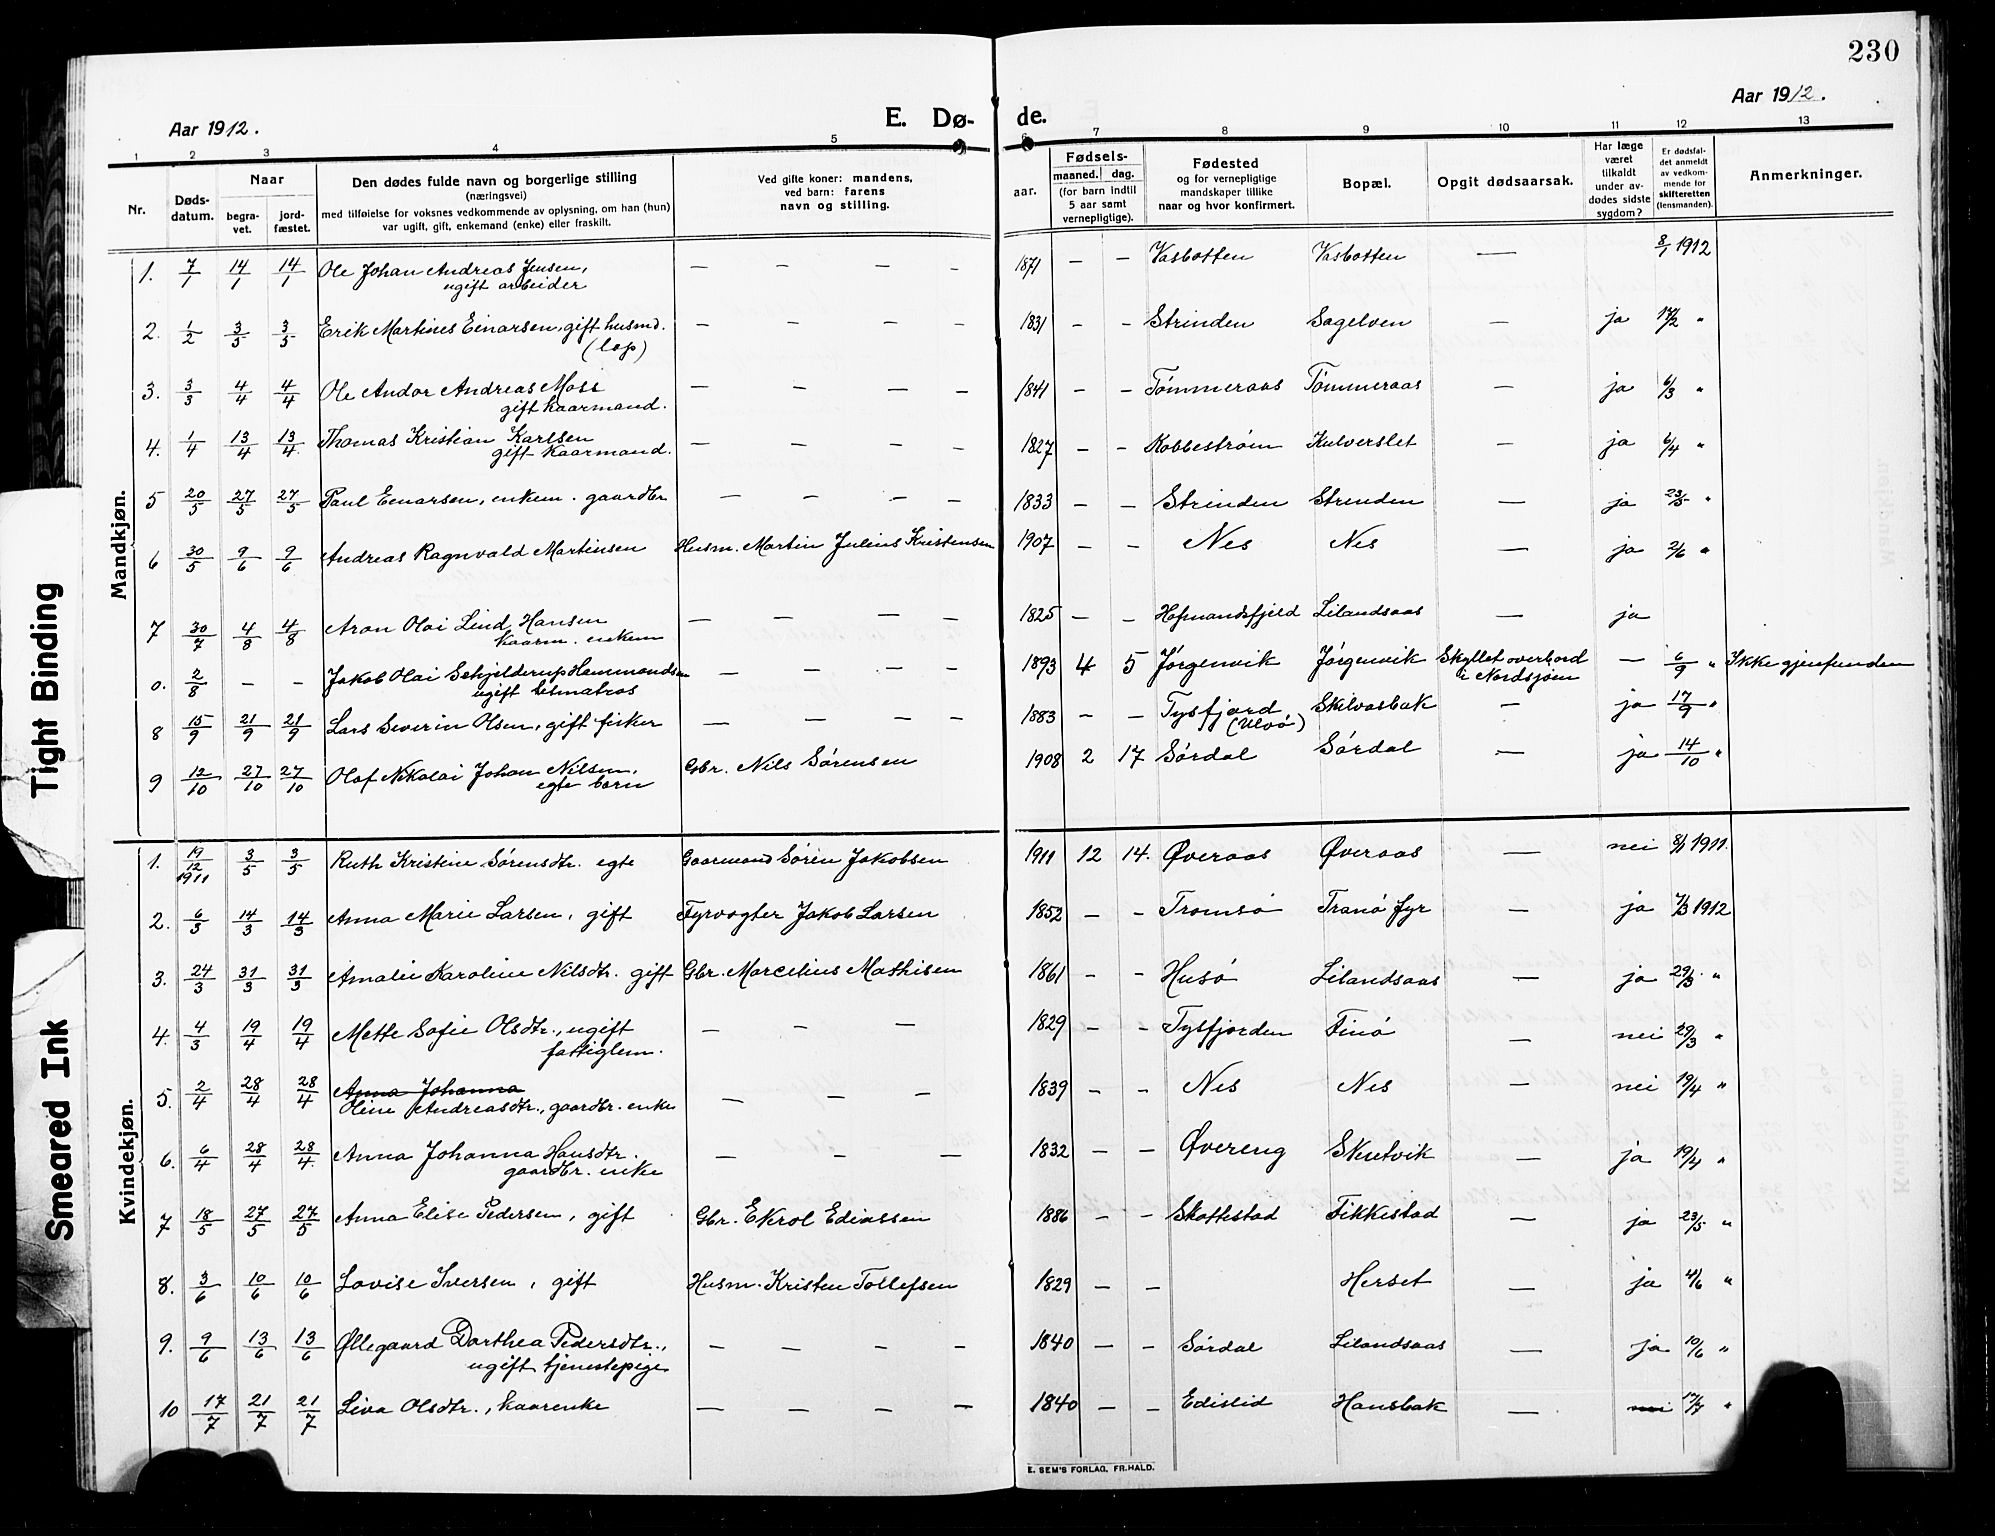 230
Aar 1912.
E. Dø-
de.
Aar 1912.
1 2 3 4 5 6 7 8 9 10 11 12 13
Nr.
Døds-
datum.
Naar
begra-
vet.
jord-
fæstet.
Den dødes fulde navn og borgerlige stilling
(næringsvei)
med tilføielse for voksnes vedkommende av oplysning, om han (hun)
var ugift, gift, enkemand (enke) eller fraskilt.
Ved gifte koner: mandens,
ved barn: farens
navn og stilling.
aar.
Fødsels-
maaned. dag.
(for barn indtil
5 aar samt
vernepligtige).
Fødested
og for vernepligtige
mandskaper tillike
naar og hvor konfirmert.
Bopæl.
Opgit dødsaarsak.
Har læge
været
tilkaldt
under av-
dødes sidste
sygdom?
Er dødsfal-
det anmeldt
av vedkom-
mende for
skifteretten
(lensmanden).
Anmerkninger.
Mandkjøn.
1. 7/1 14/1 14/1 Ole Johan Andreas Jensen, — — — — 1871 — — Vasbotten Vasbotten — 8/1 1912
ugift arbeider
2. 1/2 3/5 3/5 Erik Martines Einarsen, gift husmd. — — — — 1831 — — Strinden Sagelven — ja 14/2 "
(lap)
3. 3/3 4/4 4/4 Ole Andor Andreas Moss — — — — 1841 — — Tømmeraas Tømmeraas — ja 6/3 "
gift kaarmand.
4. 1/4 13/4 13/4 Thomas Kristian Karlsen — — — — 1827 — — Robbestrøm Kulverslet — ja 6/4 "
gift kaarmand.
5 20/5 27/5 27/5 Paul Einarsen, enkem. gaardbr. — — — — 1833 — — Strinden Strinden — ja 23/5 "
6 30/5 9/6 9/6 Andreas Ragnvald Martinsen Husm. Martin Julius Kristensen 1907 — — Nes Nes — ja 2/6 "
7 30/7 4/8 4/8 Aron Olai Lind Hansen — — — — 1825 — — Hofmandsfjeld Lilandsaas — ja
kaarm. enkem
0. 2/8 — — Jakob Olai Schjelderup Hammondsen — — — 1893 4 5 Jørgenvik Jørgenvik Skyllet overbord — 6/9 " Ikke gjenfunden
ugift letmatros
i Nordsjøen
8 15/9 21/9 21/9 Lars Severin Olsen, gift fisker — — — — 1883 — — Tysfjord Skilvasbak — ja 17/9 "
(Ulvø)
9 12/10 27/10 27/10 Olaf Nikolai Johan Nilsen, Gbr. Nils Sørensen 1908 2 17 Sørdal Sørdal — ja 14/10 "
egte barn
Kvindekjøn.
1. 19/12 1911 3/5 3/5 Ruth Kristine Sørensdtr. egte Gaarmand Søren Jakobsen 1911 12 14. Øveraas Øveraas — nei 8/1 1911.
2. 6/3 14/3 14/3 Anna Marie Larsen, gift Fyrvogter Jakob Larsen 1852 — — Tromsø Tranø fyr — ja 7/3 1912
3. 24/3 31/3 31/3 Amalie Karoline Nilsdtr. gift Gbr. Marcelius Mathisen 1861 — — Husø Lilandsaas — ja 29/3 "
4. 4/3 19/4 19/4 Mette Sofie Olsdtr., ugift — — — 1829 — — Tysfjorden Finø — nei 29/3 "
fattiglem.
5. 2/4 28/4 28/4 Anna Johanna — — — 1839 — — Nes Nes — nei 19/4 "
Oline Andreasdtr., gaardbr. enke
6. 6/4 28/4 28/4 Anna Johanna Hansdtr. — — — 1832 — — Øvereng Skutvik — ja 19/4 "
gaardbr. enke
7 18/5 27/5 27/5 Anna Elise Pedersen, gift Gbr. Ekrol Ediassen 1886 — — Skottestad Fikkestad — ja 23/5 "
8. 3/6 10/6 10/6 Lovise Iversen, gift Husm. Kristen Tollefsen 1829 — — Herset — ja 4/6 "
9. 9/6 13/6 13/6 Øllegaard Dorthea Pedersdtr., — — — — 1840 — — Sørdal Lilandsaas — ja 10/6 "
ugift tjenestepige
10 17/7 21/7 21/7 Liva Olsdtr., kaarenke — — — — 1840 — — Edislid Hansbak — nei 17/7 "
E. SEM'S FORLAG, FR.HALD.
Tight Binding
Smeared Ink